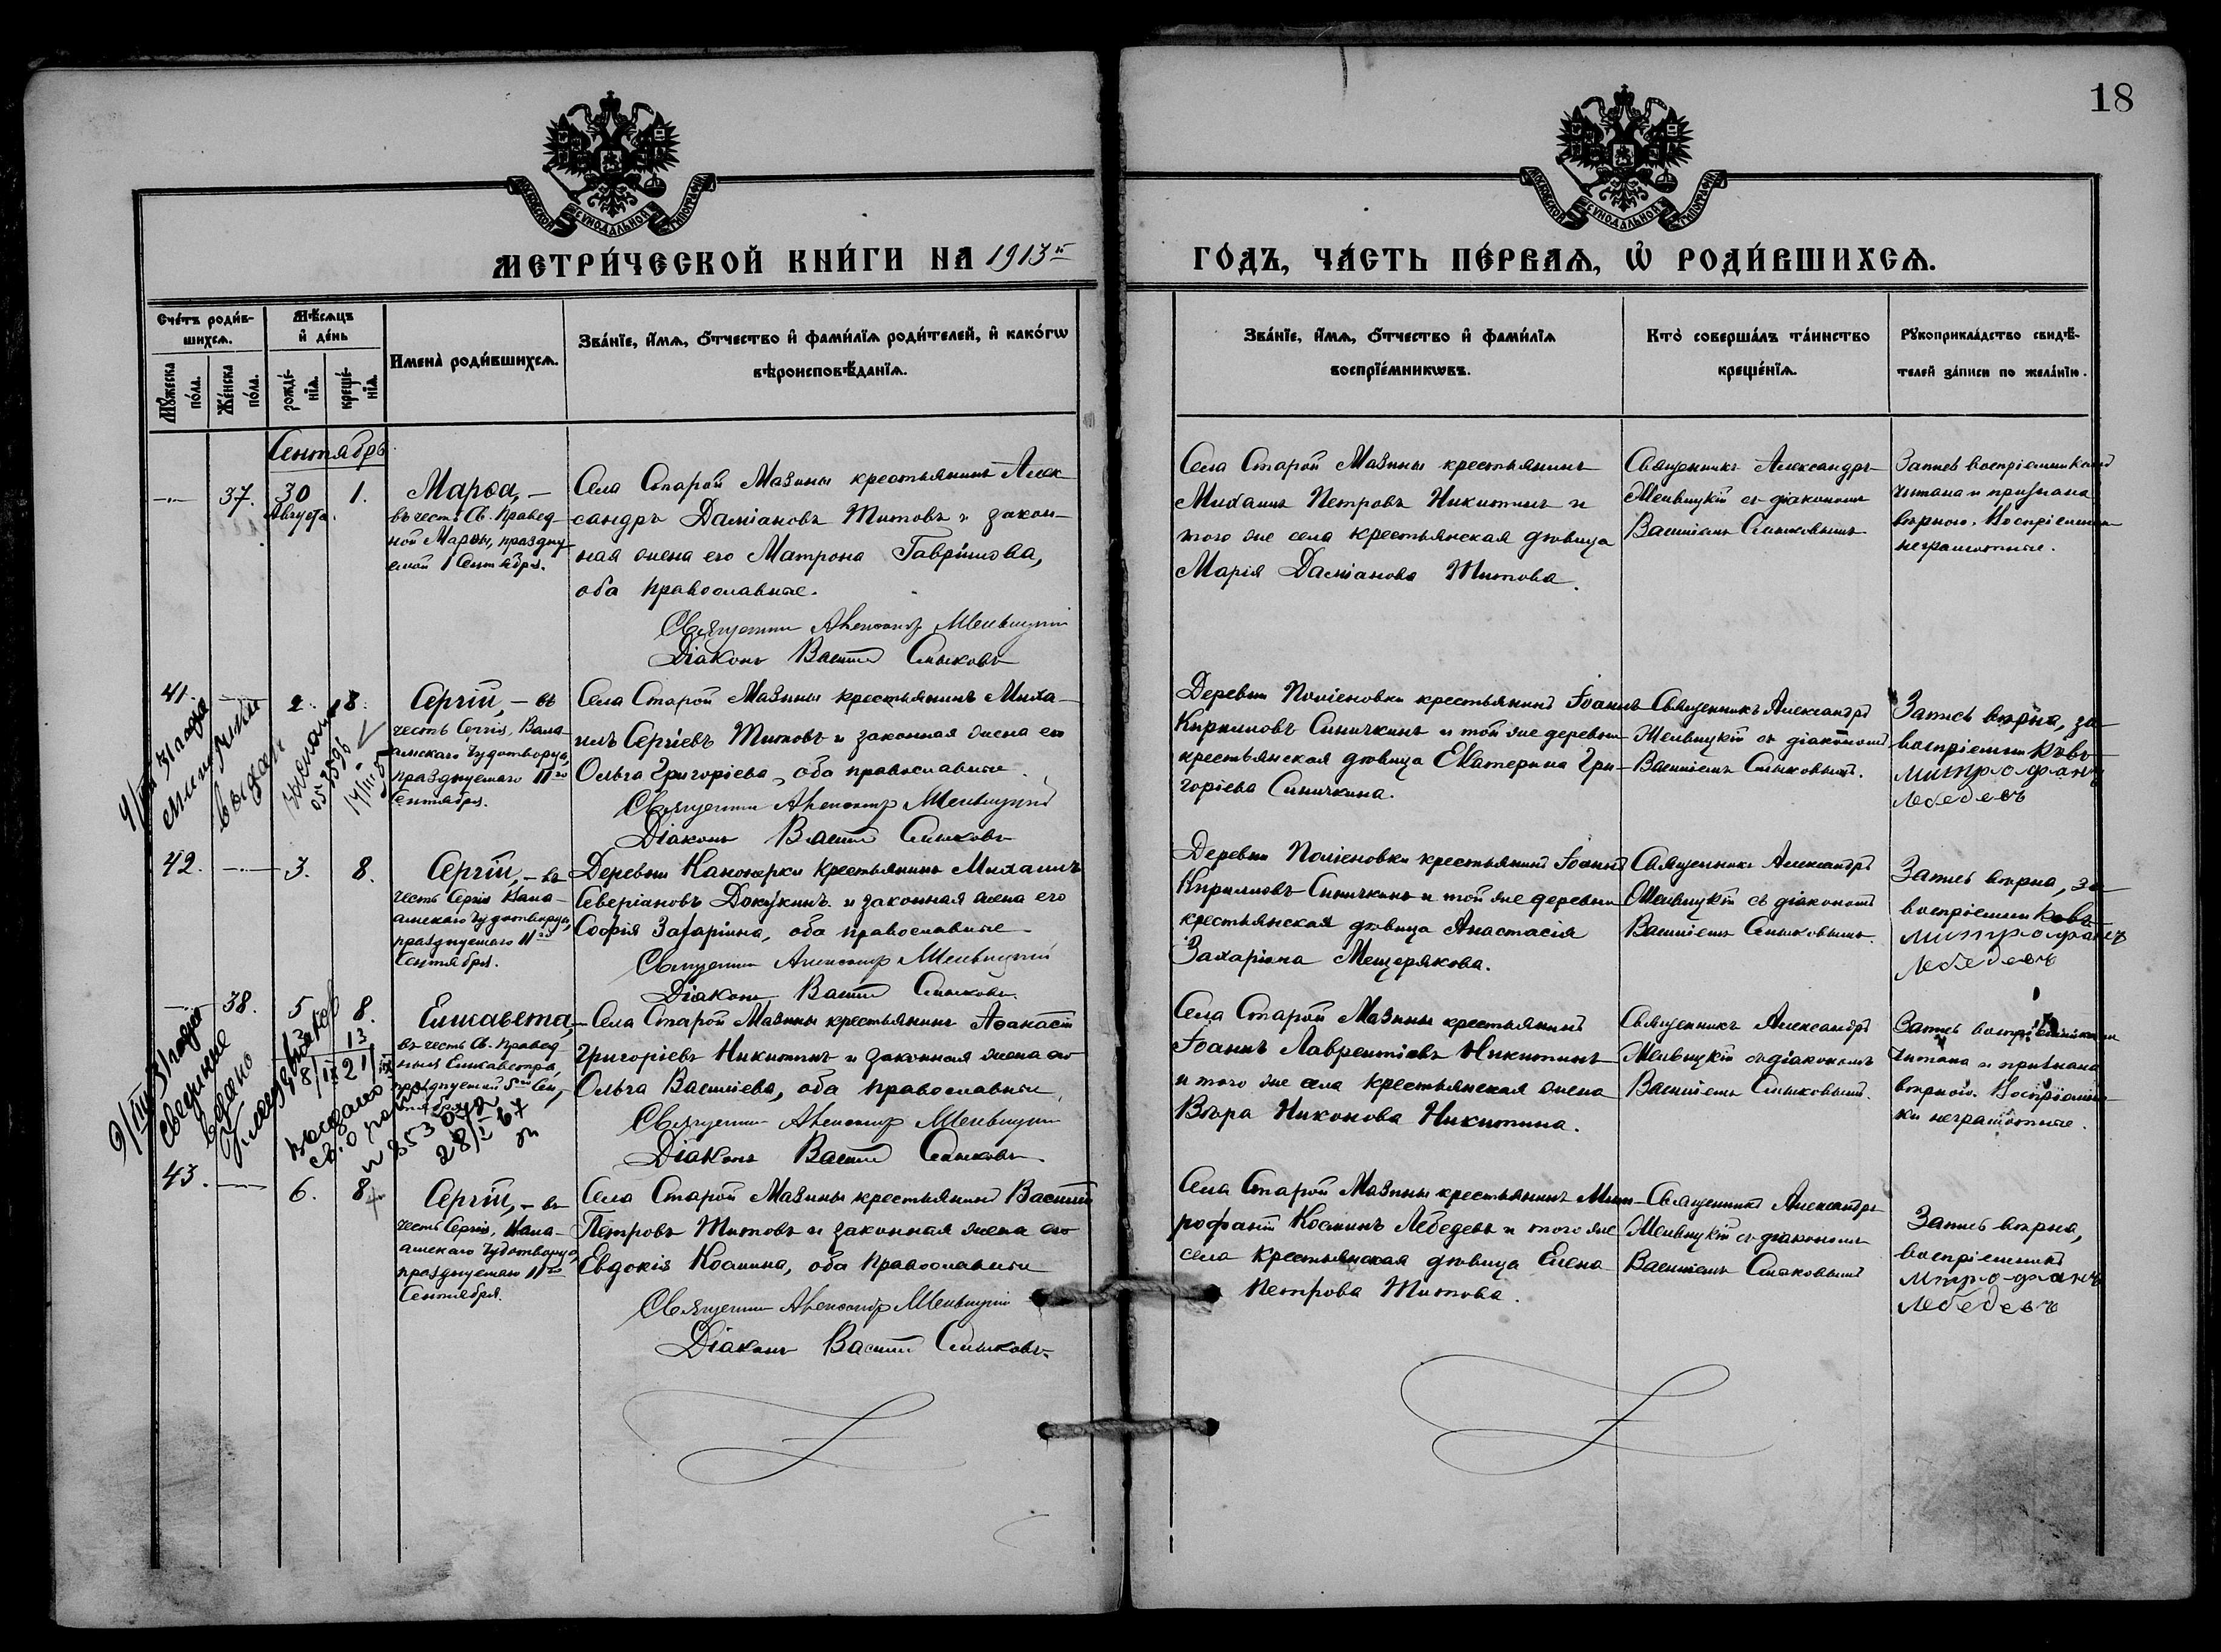 18
МОСКОВСКОЙ СѴНОДАЛЬНОЙ ТИПОГРАФІИ
МОСКОВСКОЙ СѴНОДАЛЬНОЙ ТИПОГРАФІИ
МЕТРИ́ЧЕСКОЙ КНИ́ГИ НА 1913й
ГО́ДЪ, ЧА́СТЬ ПЕ́РВАѦ, Ѿ РОДИ́ВШИХСѦ.
Сче́тъ роди́в-
шихсѧ.
Мꙋ́жеска по́ла.
Же́нска по́ла.
Мѣ́сѧцъ и҆ де́нь
рожде́-
нїѧ.
креще́-
нїѧ.
Имена̀ роди́вшихсѧ.
Зва́нїе, и҆́мѧ, ѻ҆́тчество и҆ фами́лїѧ роди́телей, и҆ како́гѡ
вѣроисповѣ́данїѧ.
Зва́нїе, и҆́мѧ, ѻ҆́тчество и҆ фами́лїѧ
воспрїе́мникѡвъ.
Кто̀ соверша́лъ та́инство
креще́нїѧ.
Рꙋкоприкла́дство свидѣ́-
телей за́писи по жела́нїю.
Сентябрь
37.
30
Августа.
1.
Марѳа, —
въ честь Св. Правед-
ной Марѳы, праздну-
емой 1 Сентября.
Села Старой Мазины крестьянинъ Алек
сандръ Даміановъ Титовъ и закон-
ная жена его Матрона Гавріилова,
оба православные.
Священникъ Александр
Діаконъ Василій
Села Старой Мазины крестьянинъ
Михаилъ Петровъ Никитинъ и
того же села крестьянская дѣвица
Марія Даміанова Титова.
Священникъ Александръ
съ діакономъ
Василіемъ
Запись воспріемниками
читана и признана
вѣрною. Воспріемники
неграмотные.
41.
2.
8.
Сергій, — въ
честь Сергія, Вала-
амскаго Чудотворца,
празднуемаго 11го
Сентября.
Села Старой Мазины крестьянинъ Миха-
илъ Сергіевъ Титовъ и законная жена его
Ольга Григоріева, оба православные.
Священникъ Александр
Діаконъ Василій
Деревни крестьянинъ Іоаннъ
Кирилловъ Синичкинъ и той же деревни
крестьянская дѣвица Екатерина Гри-
горіева Синичкина.
Священникъ Александръ
съ діакономъ
Василіемъ
Запись вѣрна, за
воспріемниковъ
митрофанъ
лебедевъ
42.
3.
8.
Сергій, — въ
честь Сергія Вала-
амскаго Чудотворца,
празднуемаго 11го
Сентября.
Деревни Канонерки крестьянинъ Михаилъ
Северіановъ Докукинъ и законная жена его
Софія Захаріина, оба православные.
Священникъ Александр
Діаконъ Василій
Деревни крестьянинъ Іоаннъ
Кирилловъ Синичкинъ и той же деревни
крестьянская дѣвица Анастасія
Захаріина Мещерякова.
Священникъ Александръ
съ діакономъ
Василіемъ
Запись вѣрна, за
воспріемниковъ
митрофанъ
Лебедевъ
38.
5
8.
Елисавета,
въ честь Св. Правед
ныя Елисаветы,
празднуемой 5го Сен-
тября.
Села Старой Мазины крестьянинъ Аѳанасій
Григоріевъ Никитинъ и законная жена его
Ольга Василіева, оба православные.
Священникъ Александр
Діаконъ Василій
Села Старой Мазины крестьянинъ
Іоаннъ Лаврентіевъ Никитинъ
и того же села крестьянская жена
Вѣра Никонова Никитина.
Священникъ Александръ
съ діакономъ
Василіемъ
Запись воспріемниками
читана и признана
вѣрной. Воспріемни-
ки неграмотные.
43.
6.
8
Сергій, — въ
честь Сергія, Вала-
амскаго Чудотворца,
празднуемаго 11го
Сентября.
Села Старой Мазины крестьянинъ Василій
Петровъ Титовъ и законная жена его
Евдокія Космина, оба православные
Священникъ Александр
Діаконъ Василій
Села Старой Мазины крестьянинъ Мит-
рофанъ Косминъ Лебедевъ и того же
села крестьянская дѣвица Елена
Петрова Титова.
Священникъ Александръ
съ діакономъ
Василіемъ
Запись вѣрна,
воспріемникъ
митрофанъ
лебедевъ